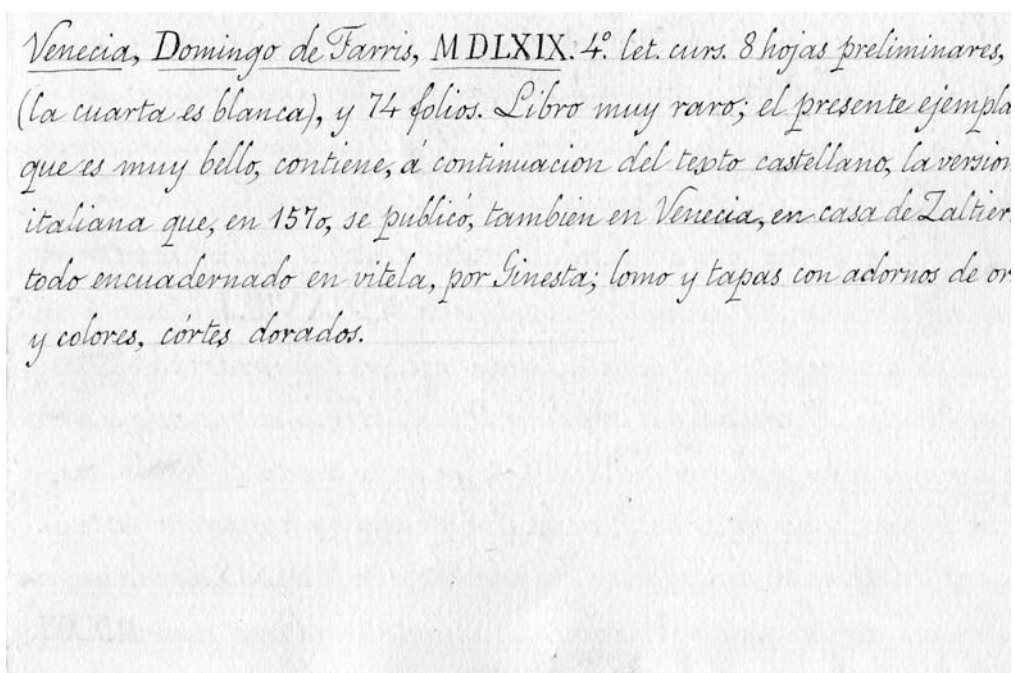 Venecia, Domingo de Farris, MDLXIX. 4º. let. curs. 8 hojas preliminares,
(la cuarta es blanca), y 74 folios. Libro muy raro; el presente ejempla
que es muy bello, contiene, á continuacion del texto castellano, la version
italiana que, en 1570, se publicó, tambien en Venecia, en casa de Zaltier
todo encuadernado en vitela, por Ginesta; lomo y tapas con adornos de or
y colores, córtes dorados.